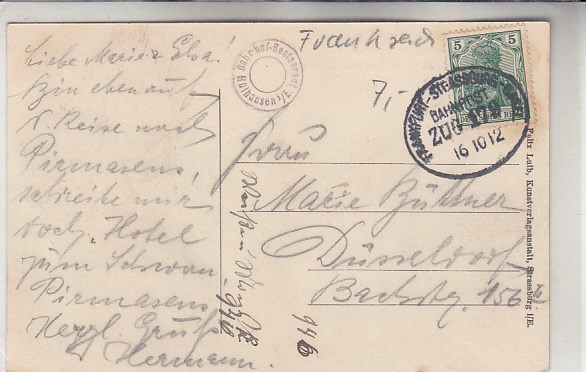 Liebe Marie & Elsa!
Bin eben auf
d. Reise nach
Pirmasens,
schreibe mir
doch, Hotel
zum Schwan
Pirmasens
Herzl. Gruß
Hermann.
Bahnhof-Restaurant
Mülhausen i/E.
Frankreich
7,-
5
DEUTSCHES REICH
FRANKFURT-STRASSBURG
BAHNPOST
ZUG
16 10 12
Frau
Marie Büttner
Düsseldorf
Bachstr. 156
946
Felix Luib, Kunstverlagsanstalt, Strassburg i/E.